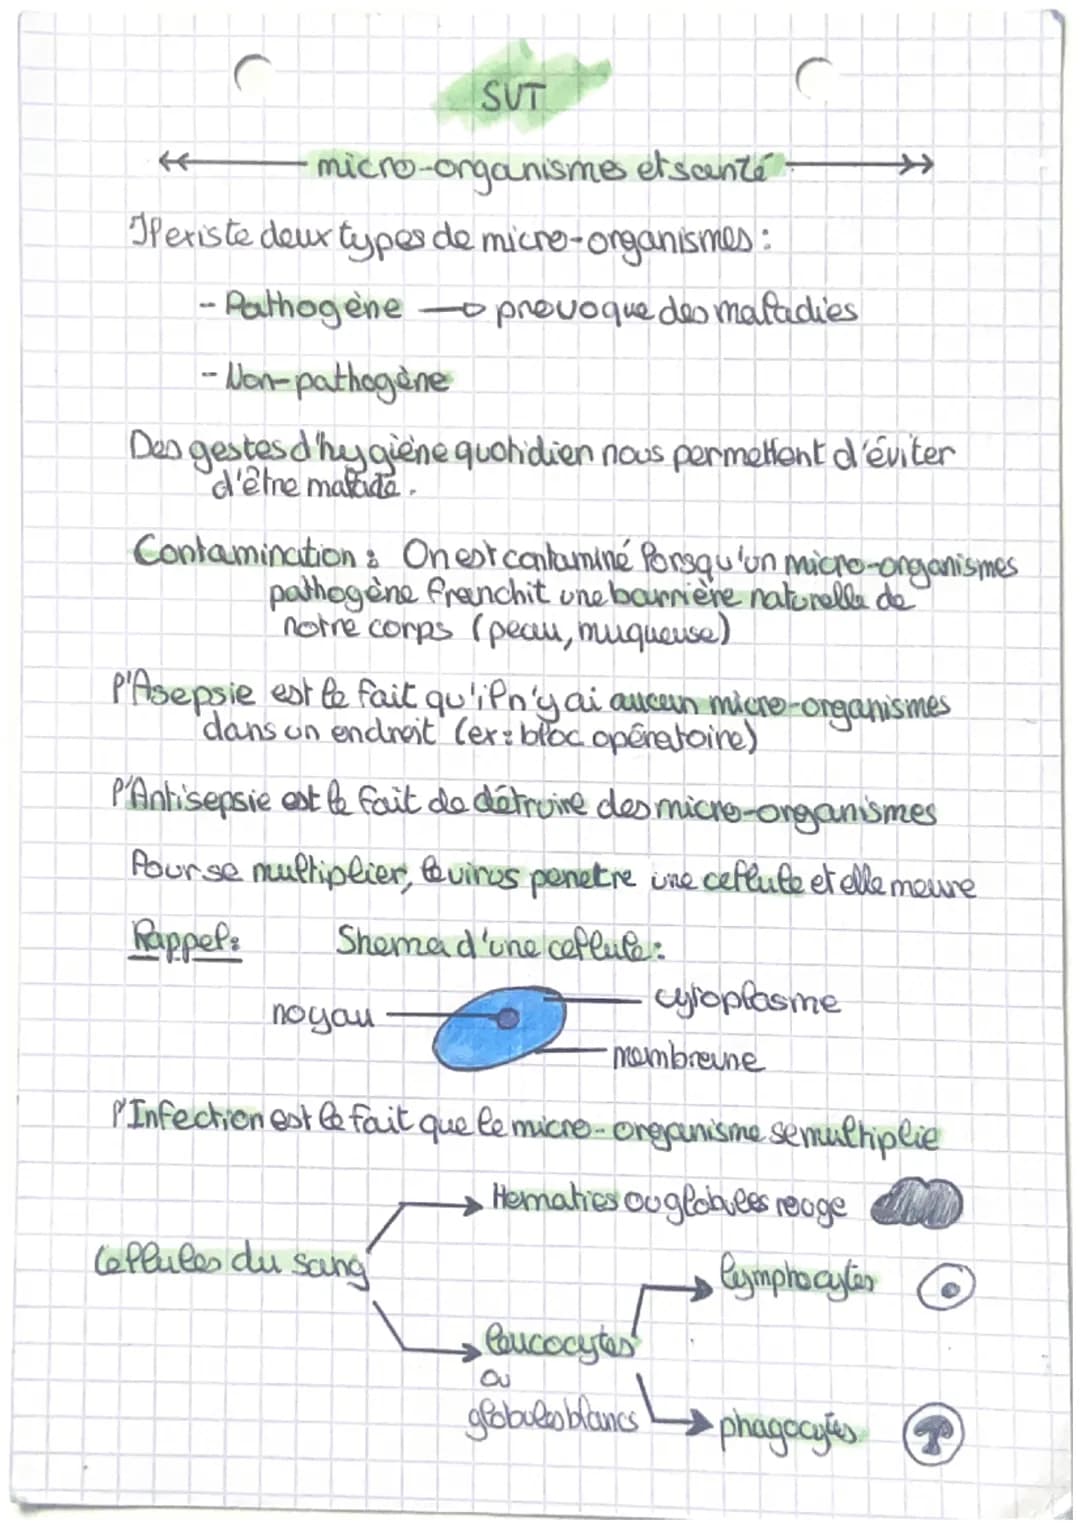 SVT
micro-organismes et santé
Il existe deux types de micro-organismes :
- Pathogène → provoque des maladies
- Non-pathogène
Des gestes d'hygiène quotidien nous permettent d'éviter
d'être malade.
Contamination : On est contaminé lorsqu'un micro-organismes
pathogène franchit une barrière naturelle de
notre corps (peau, muqueuse)
l'Asepsie est le fait qu'il n'y ai aucun micro-organismes
dans un endroit (ex : bloc opératoire)
l'Antisepsie est le fait de détruire des micro-organismes
Pour se multiplier, le virus penetre une cellule et elle meure
Rappel : Shema d'une cellule :
noyau cytoplasme
membrane
l'Infection est le fait que le micro-organisme se multiplie
Hematies ou globules rouge
Cellules du sang lymphocytes
leucocytes
ou
globules blancs phagocytes